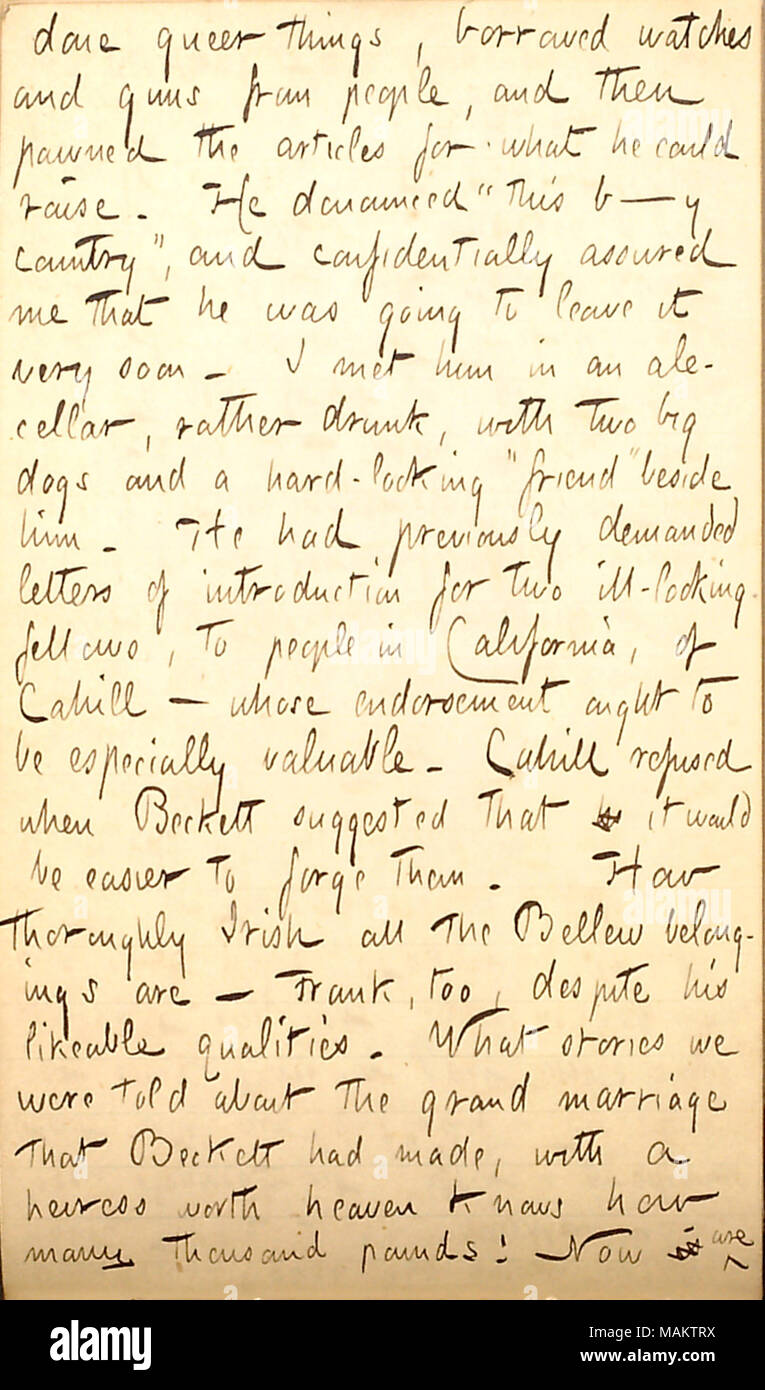 done queer things, borrowed watches
and guns from people, and then
pawned the articles for what he could
raise. He denounced "this b—y
country", and confidentially assured
me that he was going to leave it
very soon. I met him in an ale-
cellar, rather drunk, with two big
dogs and a hard-looking "friend" beside
him. He had previously demanded
letters of introduction for two ill-looking
fellows, to people in California, of
Cahill — whose endorsement ought to
be especially valuable. Cahill refused
when Beckett suggested that it would
be easier to forge them. How
thoroughly Irish all the Bellew belong-
ings are — Frank, too, despite his
likeable qualities. What stories we
were told about the grand marriage
that Beckett had made, with a
heiress worth heaven knows how
many thousand pounds! Now are
alamy
Image ID: MAKTRX
www.alamy.com